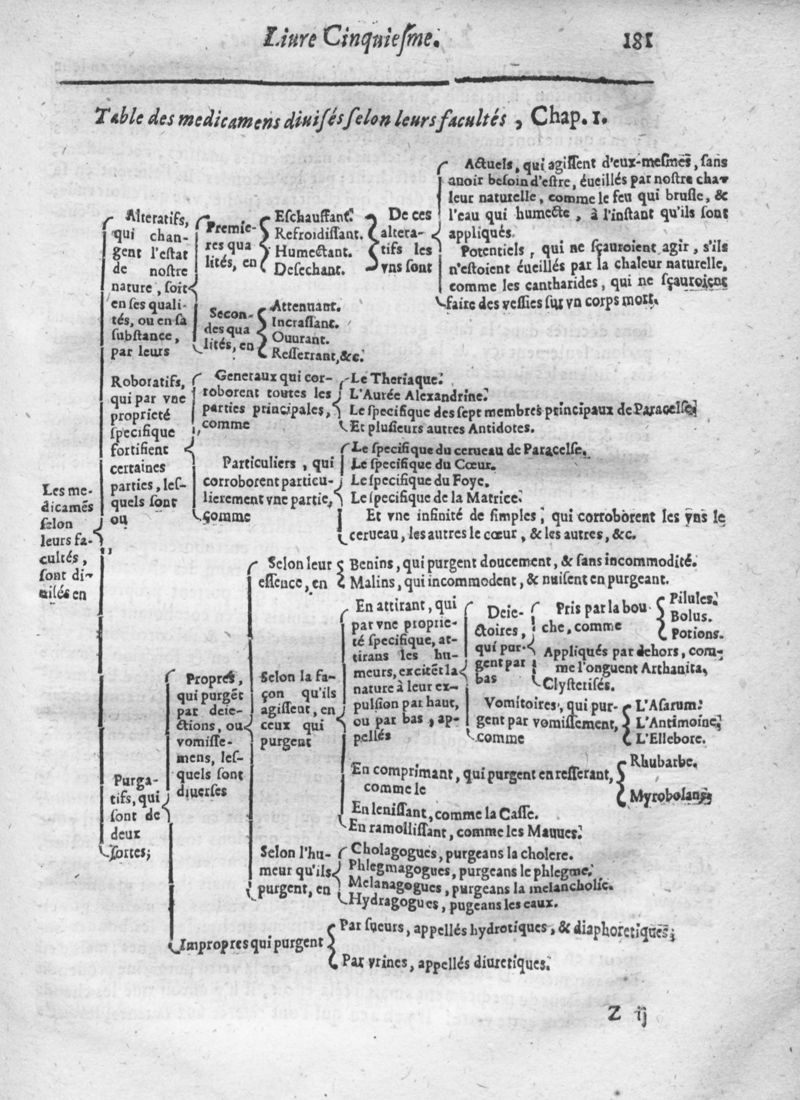 Liure Cinquiesme. 181
Table des medicamens diuisés selon leurs facultés, Chap. 1.
Les me-
dicamẽs
selon
leurs fa-
cultés,
sont di-
uisés en
Alteratifs,
qui chan-
gent l'estat
de nostre
nature, soit
en ses quali-
tés, ou en sa
substance,
par leurs
Premie-
res qua
lités, en
Eschauffant.
Refroidissant.
Humectant.
Desechant.
De ces
altera-
tifs les
vns sont
Actuels, qui agissent d'eux-mesmes, sans
auoir besoin d'estre, éueillés par nostre cha-
leur naturelle, comme le feu qui brusle, &
l'eau qui humecte, à l'instant qu'ils sont
appliqués.
Potentiels, qui ne sçauroient agir, s'ils
n'estoient éueillés par la chaleur naturelle,
comme les cantharides, qui ne sçauroient
faire des vessies sur vn corps mort.
Secon-
des qua
lités, en
Attenuant.
Incrassant.
Ouurant.
Resserrant, &c.
Roboratifs,
qui par vne
proprieté
specifique
fortifient
certaines
parties, les-
quels sont
ou
Generaux qui cor-
roborent toutes les
parties principales,
comme
Le Theriaque.
L'Aurée Alexandrine.
Le specifique des sept membres principaux de Paracelse.
Et plusieurs autres Antidotes.
Particuliers, qui
corroborent particu-
lierement vne partie,
comme
Le specifique du cerueau de Paracelse.
Le specifique du Cœur.
Le specifique du Foye.
Le specifique de la Matrice.
Et vne infinité de simples, qui corroborent les vns le
cerueau, les autres le cœur, & les autres, &c.
Purga-
tifs, qui
sont de
deux
sortes;
Propres,
qui purgẽt
par deie-
ctions, ou
vomisse-
mens, les-
quels sont
diuerses
Selon leur
essence, en
Benins, qui purgent doucement, & sans incommodité.
Malins, qui incommodent, & nuisent en purgeant.
Selon la fa-
çon qu'ils
agissent, en
ceux qui
purgent
En attirant, qui
par vne proprie-
té specifique, at-
tirans les hu-
meurs, excitẽt la
nature à leur ex-
pulsion par haut,
ou par bas, ap-
pellés
Deie-
ctoires,
qui pur-
gent par
bas
Pris par la bou
che, comme
Pilules.
Bolus.
Potions.
Appliqués par dehors, com-
me l'onguent Arthanita,
Clysterisés.
Vomitoires, qui pur-
gent par vomissement,
comme
L'Asarum.
L'Antimoine.
L'Ellebore.
En comprimant, qui purgent en resserant,
comme le
Rhubarbe.
Myrobolans,
En lenissant, comme la Casse.
En ramollissant, comme les Mauues.
Selon l'hu-
meur qu'ils
purgent, en
Cholagogues, purgeans la cholere.
Phlegmagogues, purgeans le phlegme.
Melanagogues, purgeans la melancholie.
Hydragogues, pugeans les eaux.
Impropres qui purgent
Par sueurs, appellés hydrotiques, & diaphoretiques;
Par vrines, appellés diuretiques.
Z ij